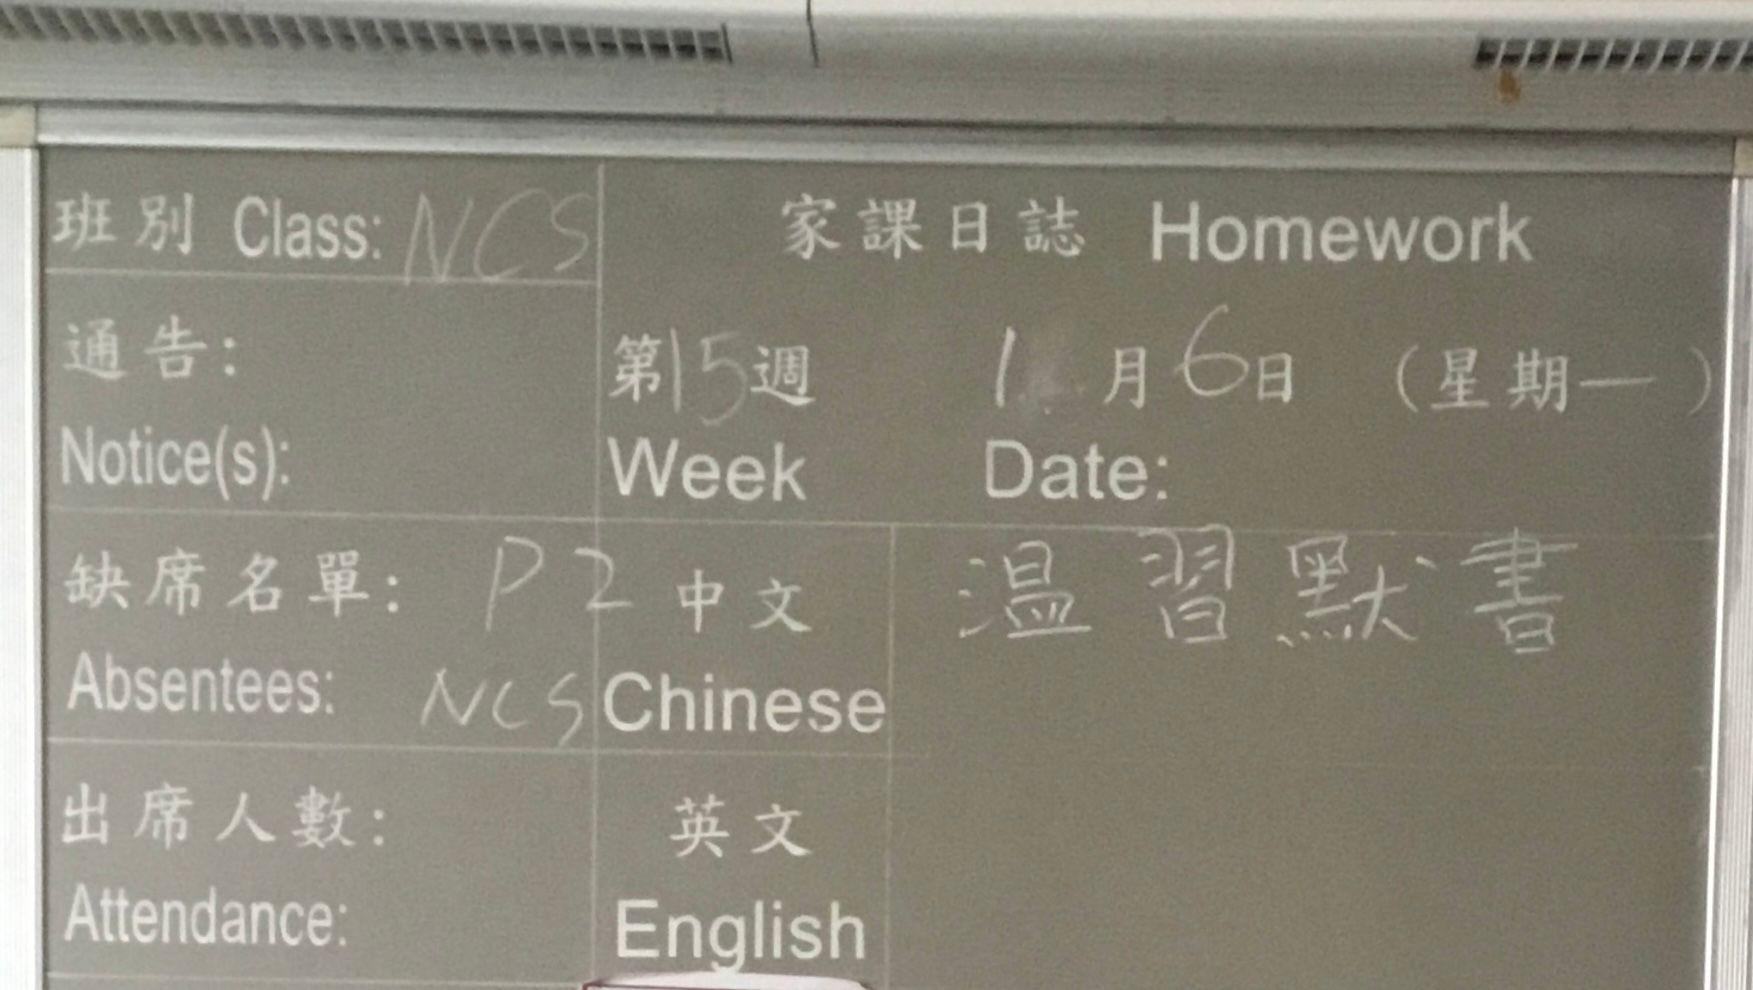 班別 Class: NCS
家課日誌 Homework
通告:
Notice(s):
第15週 1月6日 (星期一)
Week Date:
缺席名單: P2
Absentees: NCS
中文 溫習默書
Chinese
出席人數:
Attendance:
英文
English